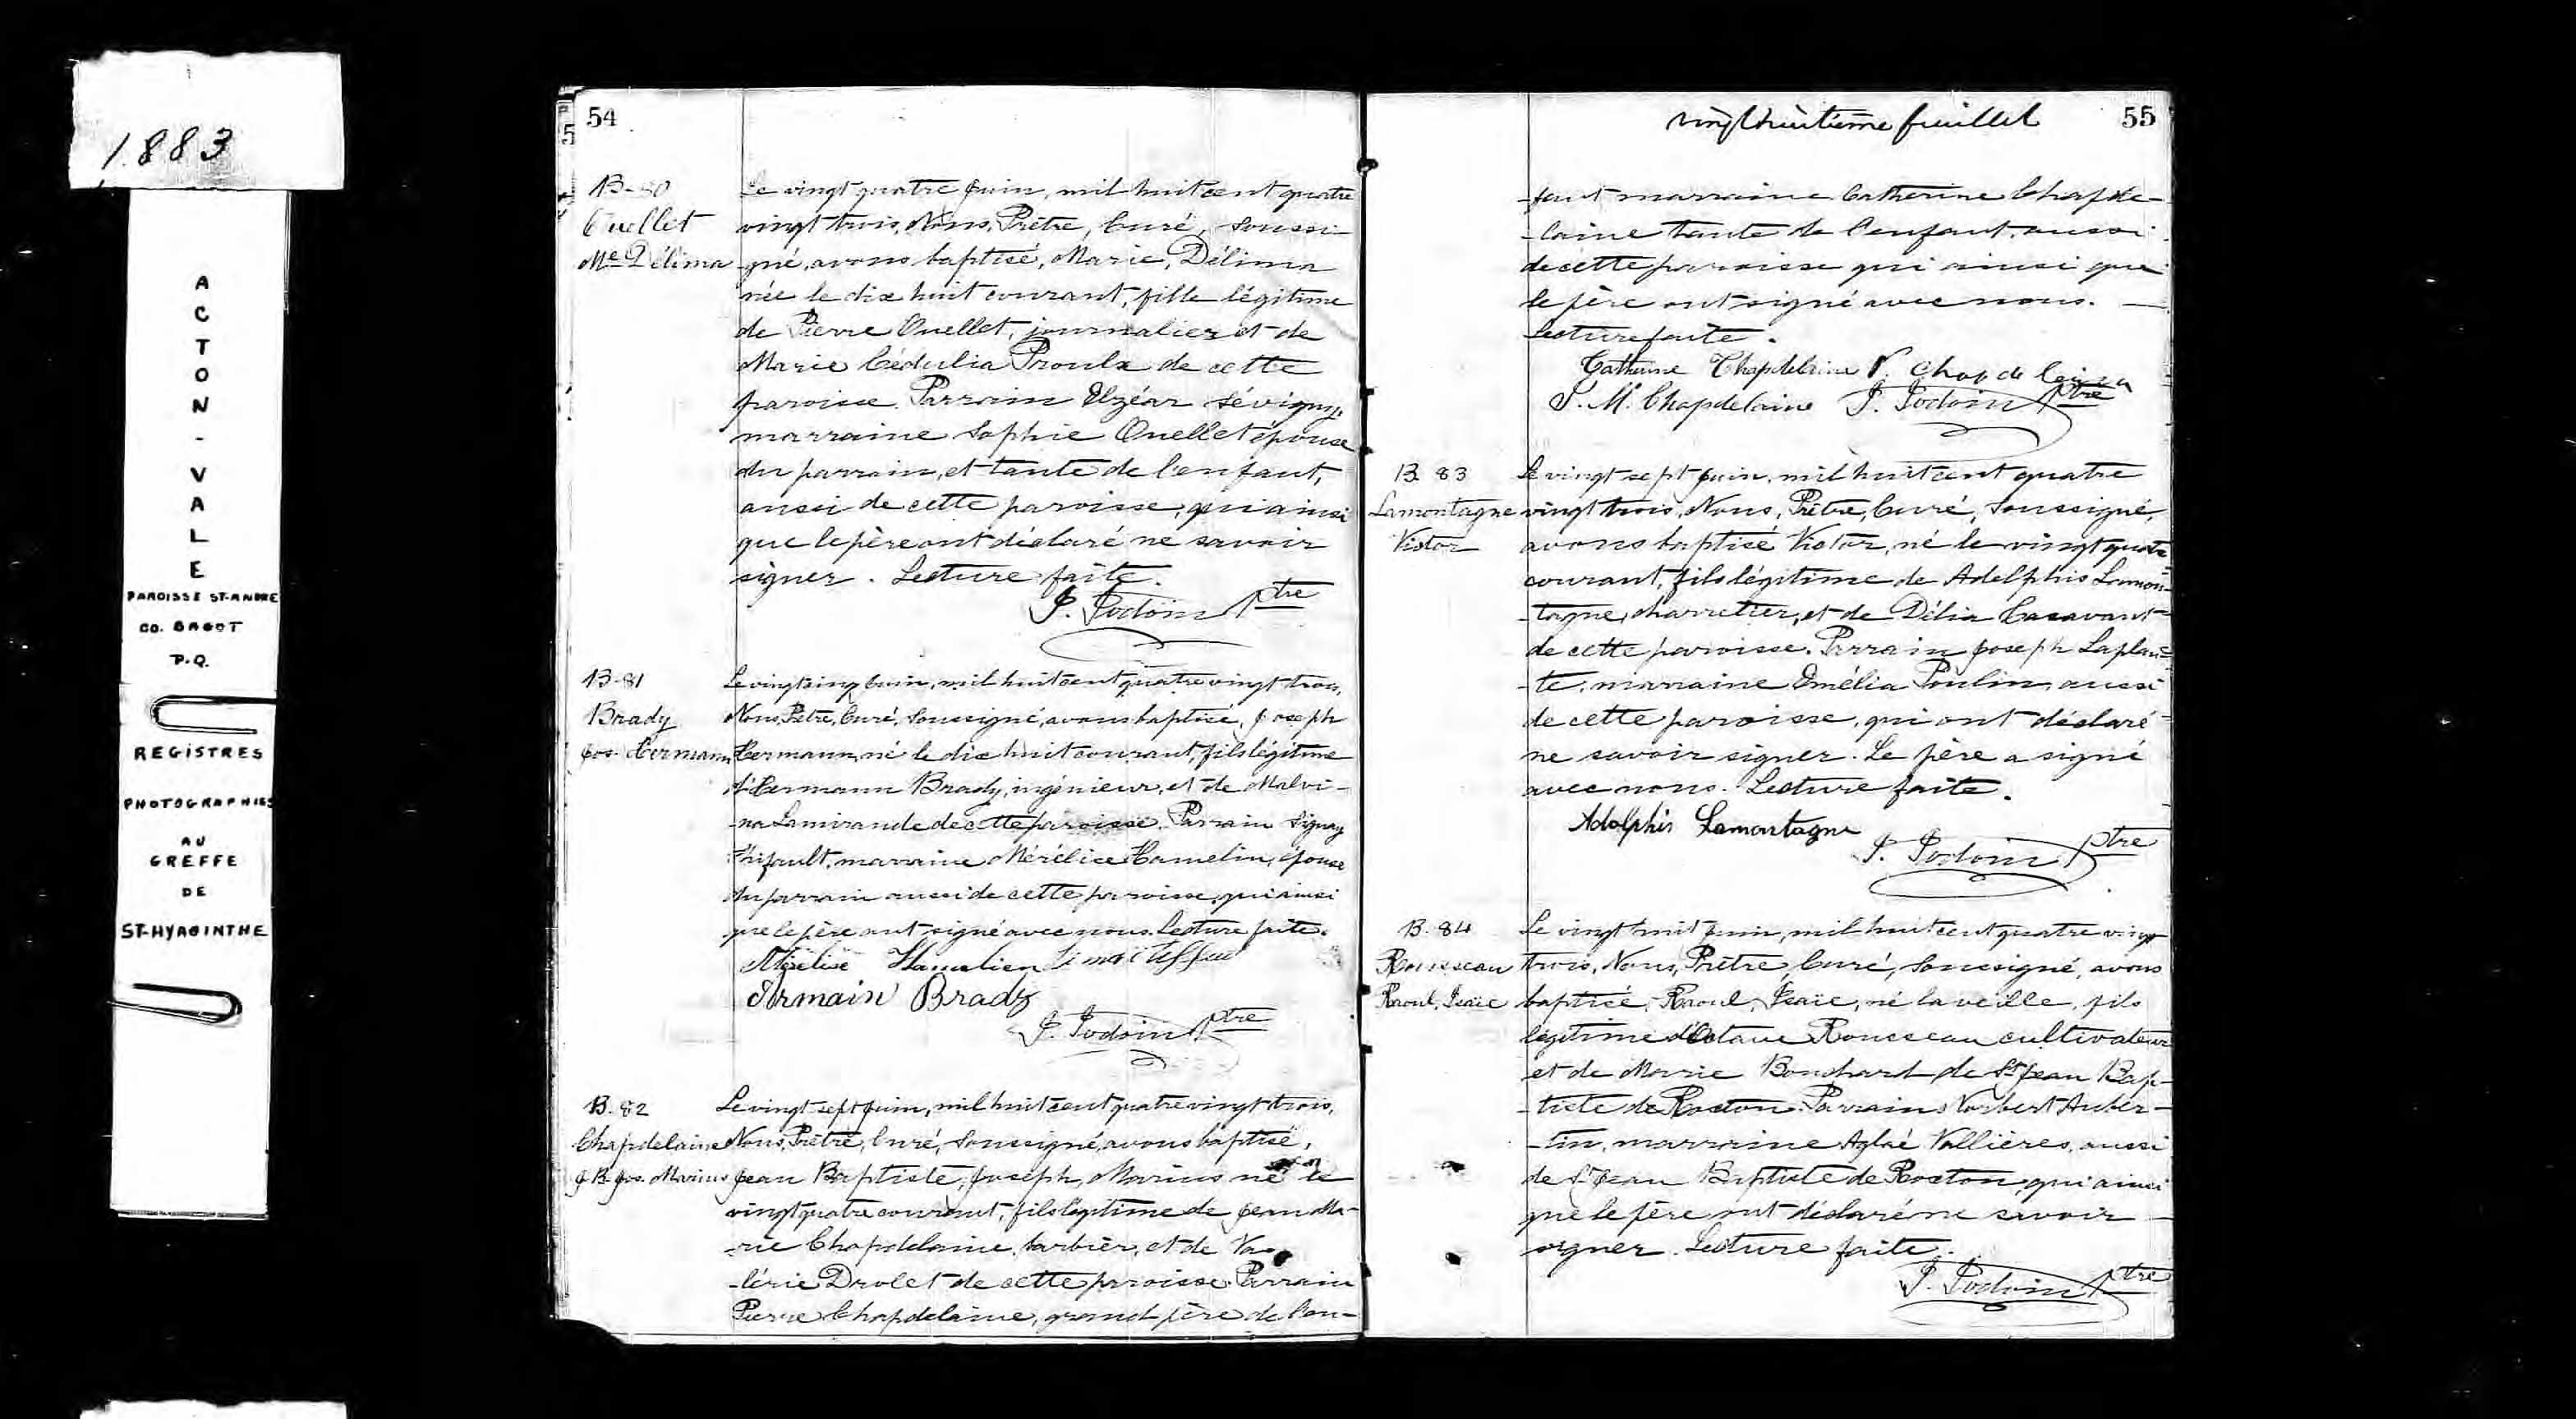 1883
ACTON-VALE
PAROISSE ST-ANDRE
CO. BAGOT
P.Q.
REGISTRES
PHOTOGRAPHIES
AU
GREFFE
DE
ST-HYACINTHE
54
B-80
Ouellet
Me Délima
Le vingt quatre Juin, mil huit cent quatre
vingt trois, Nous, Prêtre, Curé, Soussi-
gné, avons baptisé, Marie, Délima
née le dix huit courant, fille légitime
de Pierre Ouellet, journalier et de
Marie Cédulia Proulx de cette
paroisse. Parrain Elzéar Sévigny,
marraine Sophie Ouellet épouse
du parrain, et tante de l'enfant,
aussi de cette paroisse, qui ainsi
que le père ont déclaré ne savoir
signer. Lecture faite.
P. Jodoin Ptre
B-81
Brady
Jos. Hermann
Le vingt cinq Juin, mil huit cent quatre vingt trois,
Nous, Prêtre, Curé, Soussigné, avons baptisé, Joseph
Hermann, né le dix huit courant, fils légitime
d'Hermann Brady, ingénieur, et de Malvi-
-na Lamirande de cette paroisse. Parrain Signay
Thifault, marraine Mérélise Hamelin, épouse
du parrain aussi de cette paroisse, qui ainsi
que le père ont signé avec nous. Lecture faite.
Hamelien
Armain Brady
P. Jodoin Ptre
B-82
Chapdelaine
J. B. Jos. Marius
Le vingt sept Juin, mil huit cent quatre vingt trois,
Nous, Prêtre, Curé, Soussigné, avons baptisé,
Jean Baptiste, Joseph, Marius né le
vingt quatre courant, fils légitime de Jean Ma-
-rie Chapdelaine, barbier, et de Va-
-lérie Drolet de cette paroisse. Parrain
Pierre Chapdelaine, grand père de l'en-
vingthuitième feuillet
55
-fant marraine Catherine Chapde-
-laine tante de l'enfant, aussi
de cette paroisse qui ainsi que
le père ont signé avec nous. —
Lecture faite.
Catherine Chapdelaine P. Chapdelaine
J. M. Chapdelaine P. Jodoin Ptre
B. 83
Lamontagne
Victor
Le vingt sept Juin, mil huit cent quatre
vingt trois, Nous, Prêtre, Curé, Soussigné,
avons baptisé Victor, né le vingt quatre
courant, fils légitime de Adelphis Lamon-
-tagne, charretier, et de Délia Casavant
de cette paroisse. Parrain Joseph Laplan-
-te, marraine Emélia Poulin, aussi
de cette paroisse, qui ont déclaré
ne savoir signer. Le père a signé
avec nous. Lecture faite.
Adolphis Lamontagne
P. Jodoin Ptre
B. 84
Rousseau
Raoul, Isaïe
Le vingt huit Juin, mil huit cent quatre vingt
trois, Nous, Prêtre, Curé, Soussigné, avons
baptisé, Raoul, Isaïe, né la veille, fils
légitime d'Octave Rousseau cultivateur
et de Marie Bouchard de St Jean Bap-
-tiste de Roxton. Parrain Norbert Auber-
-tin, marraine Aglaé Vallières, aussi
de St Jean Baptiste de Roxton, qui ainsi
que le père ont déclaré ne savoir —
signer. Lecture faite.
P. Jodoin Ptre